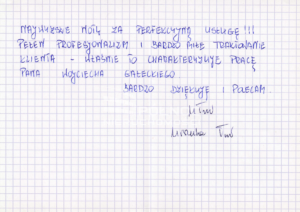 NAJWYŻSZE NOTY ZA PERFEKCYJNĄ USŁUGĘ !!!
PEŁEN PROFESJONALIZM I BARDZO MIŁE TRAKTOWANIE
KLIENTA - WŁAŚNIE TO CHARAKTERYZUJE PRACĘ
PANA WOJCIECHA GAŁECKIEGO
BARDZO DZIĘKUJĘ I POLECAM